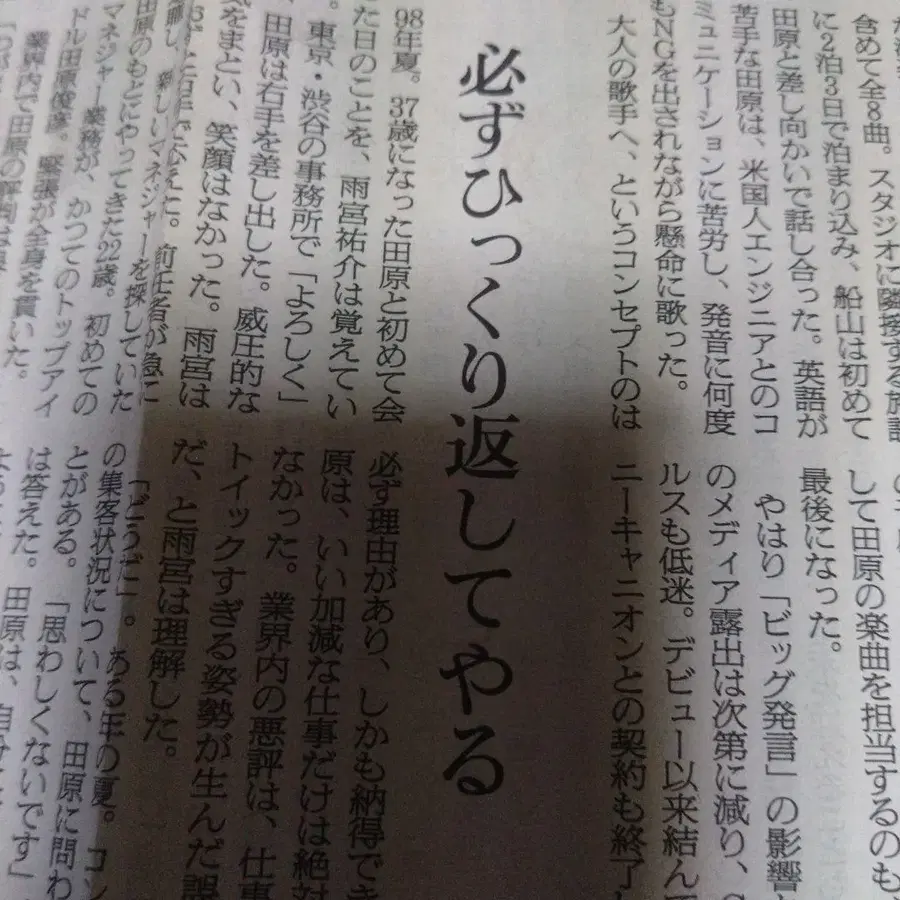 含めて全8曲。スタジオに隣接する施設
に2泊3日で泊まり込み、船山は初めて
田原と差し向かいで話し合った。英語が
苦手な田原は、米国人エンジニアとのコ
ミュニケーションに苦労し、発音に何度
もNGを出されながら懸命に歌った。
大人の歌手へ、というコンセプトのは
して田原の楽曲を担当するのも
最後になった。
やはり「ビッグ発言」の影響
のメディア露出は次第に減り、
ルスも低迷。デビュー以来結んで
ニーキャニオンとの契約も終了し
必ずひっくり返してやる
98年夏。37歳になった田原と初めて会
た日のことを、雨宮祐介は覚えてい
。東京・渋谷の事務所で「よろしく」
、田原は右手を差し出した。威圧的な
気をまとい、笑顔はなかった。雨宮は
応えた。前任者が急に
職し、新しいマネジャーを探していた
田原のもとにやってきた22歳。初めての
マネジャー業務が、かつてのトップアイ
ドル田原俊彦。緊張が全身を貫いた。
業界内で田原の評判は
必ず理由があり、しかも納得でき
原は、いい加減な仕事だけは絶対
なかった。業界内の悪評は、仕事
トイックすぎる姿勢が生んだ誤
だ、と雨宮は理解した。
「どうだ」。ある年の夏。コン
の集客状況について、田原に問わ
とがある。「思わしくないです」
は答えた。田原は、